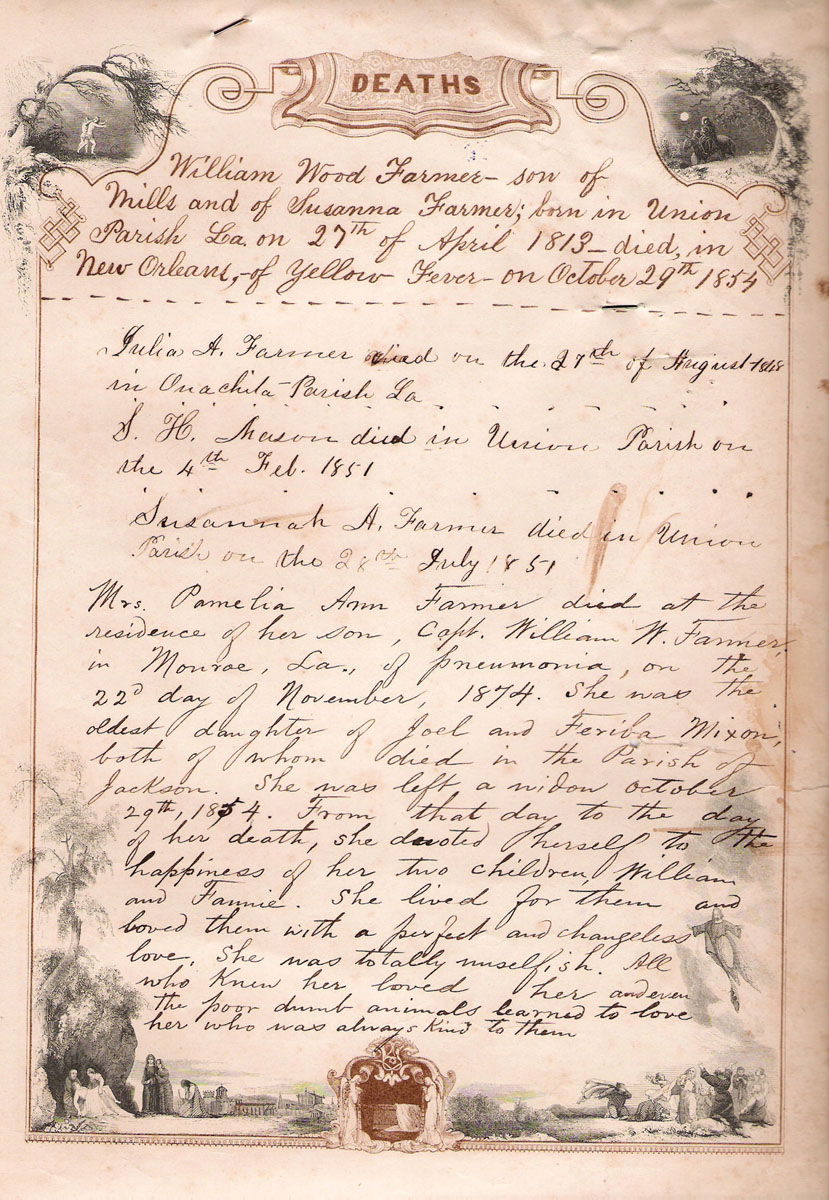 DEATHS
William Wood Farmer - son of
Mills and of Susanna Farmer; born in Union
Parish La. on 27th of April 1813 - died, in
New Orleans, - of Yellow Fever - on October 29th 1854
Julia A. Farmer died on the 27th of August 1848
in Ouachita Parish La
S. H. Mason died in Union Parish on
the 4th Feb. 1851
Susannah A. Farmer died in Union
Parish on the 28th July 1851
Mrs. Pamelia Ann Farmer died at the
residence of her son, Capt. William W. Farmer,
in Monroe, La., of pneumonia, on the
22d day of November, 1874. She was the
oldest daughter of Joel and Feriba Mixon,
both of whom died in the Parish of
Jackson. She was left a widow October
29th, 1854. From that day to the day
of her death, she devoted herself to the
happiness of her two children, William
and Fannie. She lived for them and
loved them with a perfect and changeless
love. She was totally unselfish. All
who knew her loved her and even
the poor dumb animals learned to love
her who was always kind to them